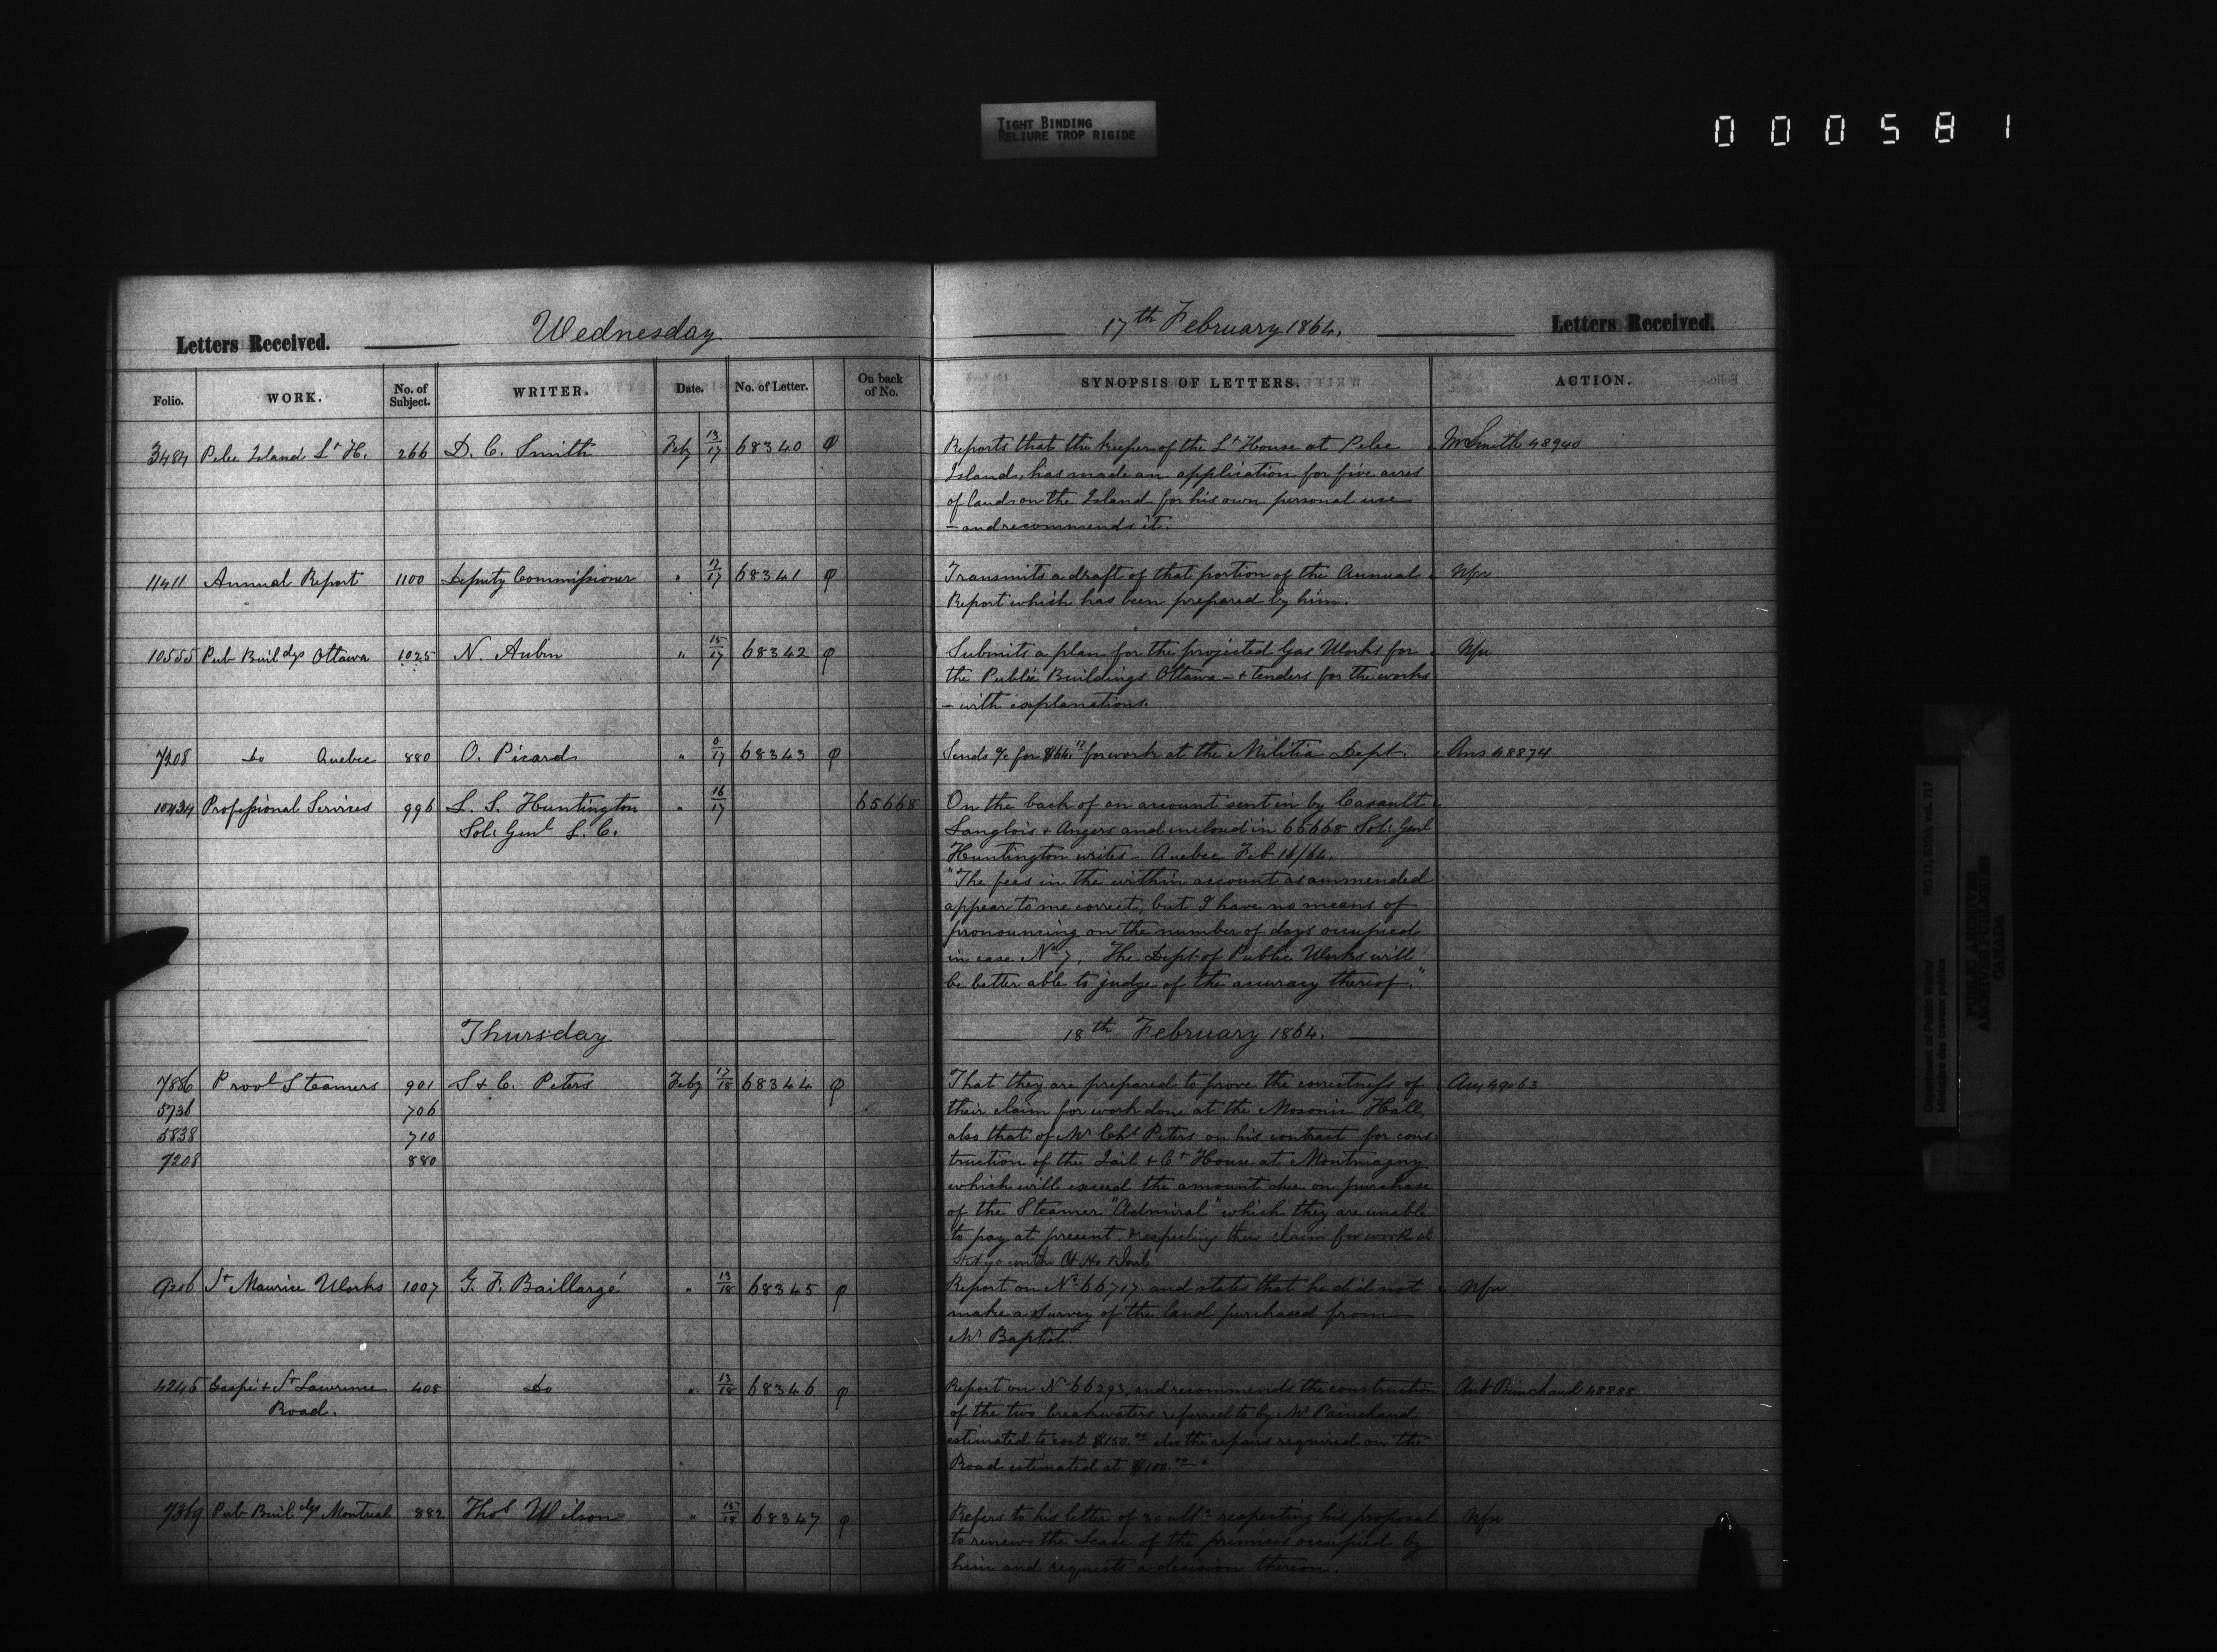 TIGHT BINDING
RELIURE TROP RIGIDE
000581
Letters Received. Wednesday
Folio. WORK. No. of Subject. WRITER. Date. No. of Letter. On back of No.
3484 Pelee Island Lt H. 266 D. C. Smith Feby 13/17 68340
11411 Annual Report 1100 Deputy Commissioner " 17/17 68341
10555 Pub Buildgs Ottawa 1025 N. Aubin " 15/17 68342
7208 Do Quebec 880 O. Picard " 0/17 68343
10434 Professional Services 996 L. S. Huntington " 16/17 65668
Sol: Genl L. C.
Thursday
7886 Provl Steamers 901 S & C. Peters Feby 17/18 68344
5736 706
5838 710
7208 880
9206 St Maurice Works 1007 G. F. Baillargé " 13/18 68345
4245 Gaspé & St Lawrence 408 Do " 13/18 68346
Road.
7369 Pub Buildgs Montreal 882 Thos Wilson " 15/18 68347
17th February 1864. Letters Received.
SYNOPSIS OF LETTERS. ACTION.
Reports that the keeper of the Lt House at Pelee Mr Smith 48940
Island, has made an application for five acres
of land on the Island for his own personal use
- and recommends it.
Transmits a draft of that portion of the Annual Nfn
Report which has been prepared by him.
Submits a plan for the projected Gas Works for Nfn
the Public Buildings Ottawa - & tenders for the works
- with explanations.
Sends a/c for $66.12 for work at the Militia Dept. Ans 48874
On the back of an account sent in by Casault
Langlois & Angers and enclosed in 65668 Sol: Genl
Huntington writes - Quebec Feb 16/64.
"The fees in the within account as ammended
appear to me correct, but I have no means of
pronouncing on the number of days occupied
in case No 7. The Dept of Public Works will
be better able to judge of the accuracy thereof."
18th February 1864.
That they are prepared to prove the correctness of Ans 49063
their claim for work done at the Masonic Hall,
also that of Mr Chs Peters on his contract for cons
truction of the Jail & Ct House at Montmagny
which will exceed the amount due on purchase
of the Steamer "Admiral" which they are unable
to pay at present. & respecting their claim for work at
Ct Ho & Jail
Report on No 66717 and states that he did not Nfn
make a survey of the land purchased from
Mr Baptist.
Report on No 66293, and recommends the construction Ant Painchaud 48888
of the two breakwaters referred to by Mr Painchaud
estimated to cost $150.00 also the repairs required on the
Road estimated at $100.00
Refers to his letter of 30 ulto respecting his proposal Nfn
to renew the Lease of the premises occupied by
him and requests a decision thereon.
Department of Public Works/
Ministère des travaux publics
RG 11, B1(b), vol. 717
PUBLIC ARCHIVES
ARCHIVES PUBLIQUES
CANADA